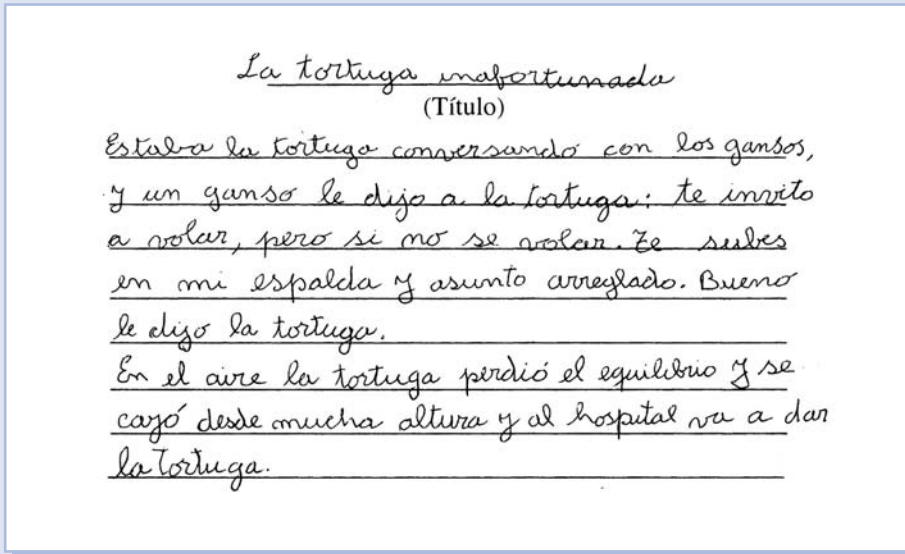 La tortuga inafortunada
(Título)
Estaba la tortuga conversando con los gansos,
y un ganso le dijo a la tortuga: te invito
a volar, pero si no se volar. Te subes
en mi espalda y asunto arreglado. Bueno
le dijo la tortuga.
En el aire la tortuga perdió el equilibrio y se
cayó desde mucha altura y al hospital va a dar
la tortuga.